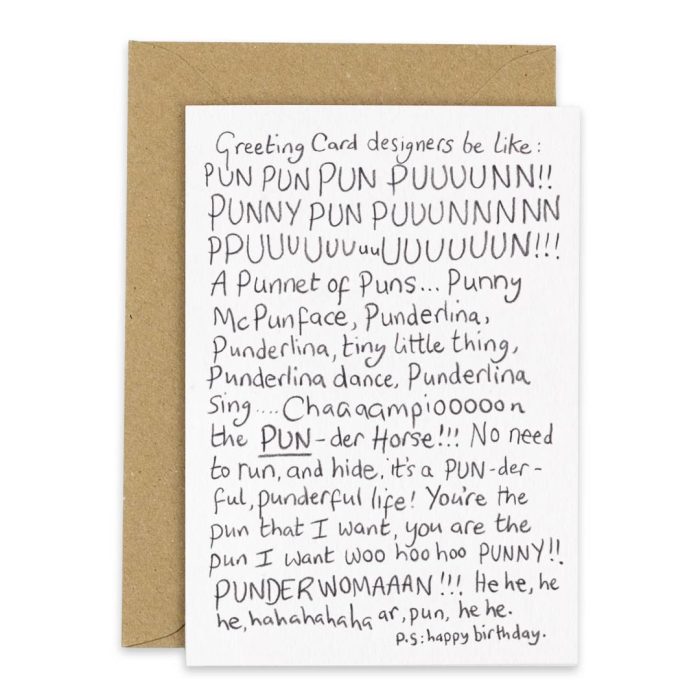 Greeting Card designers be like:
PUN PUN PUN PUUUUNN!!
PUNNY PUN PUUUNNNNN
PPUUUUUUUuuUUUUUUUN!!!
A Punnet of Puns... Punny
McPunface, Punderlina,
Punderlina, tiny little thing,
Punderlina dance, Punderlina
Sing.... Chaaaampiooooon
the PUN-der Horse!!! No need
to run, and hide, it's a PUN-der-
ful, punderful life! You're the
pun that I want, you are the
pun I want woo hoo hoo PUNNY!!
PUNDERWOMAAAN!!! He he, he
he, hahahahaha ar, pun, he he.
P.S: happy birthday.